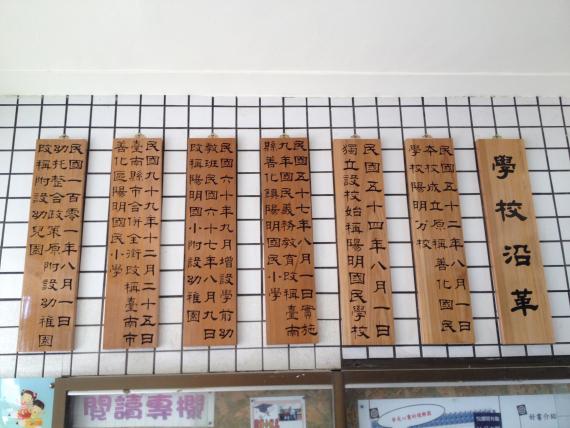 學校沿革
民國五十二年八月一日
本校成立原稱善化國民
學校陽明分校
民國五十四年八月一日
獨立設校始稱陽明國民學校
民國五十七年八月一日實施
九年國民義務教育改稱臺南
縣善化鎮陽明國民小學
民國六十年九月增設學前幼
教班民國六十七年八月九日
改稱陽明國小附設幼稚園
民國九十九年十二月二十五日
臺南縣市合併全銜改稱臺南市
善化區陽明國民小學
民國一百零一年八月一日
幼托整合政策原附設幼稚園
改稱附設幼兒園
閱讀專欄
好書介紹